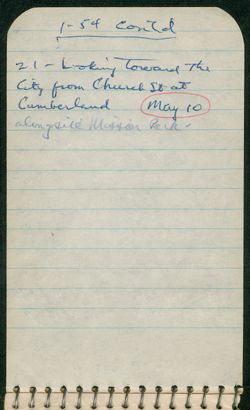 1-54 Cont'd
21 - Looking Toward The
City from Church St at
Cumberland May 10
alongside Mission Park -